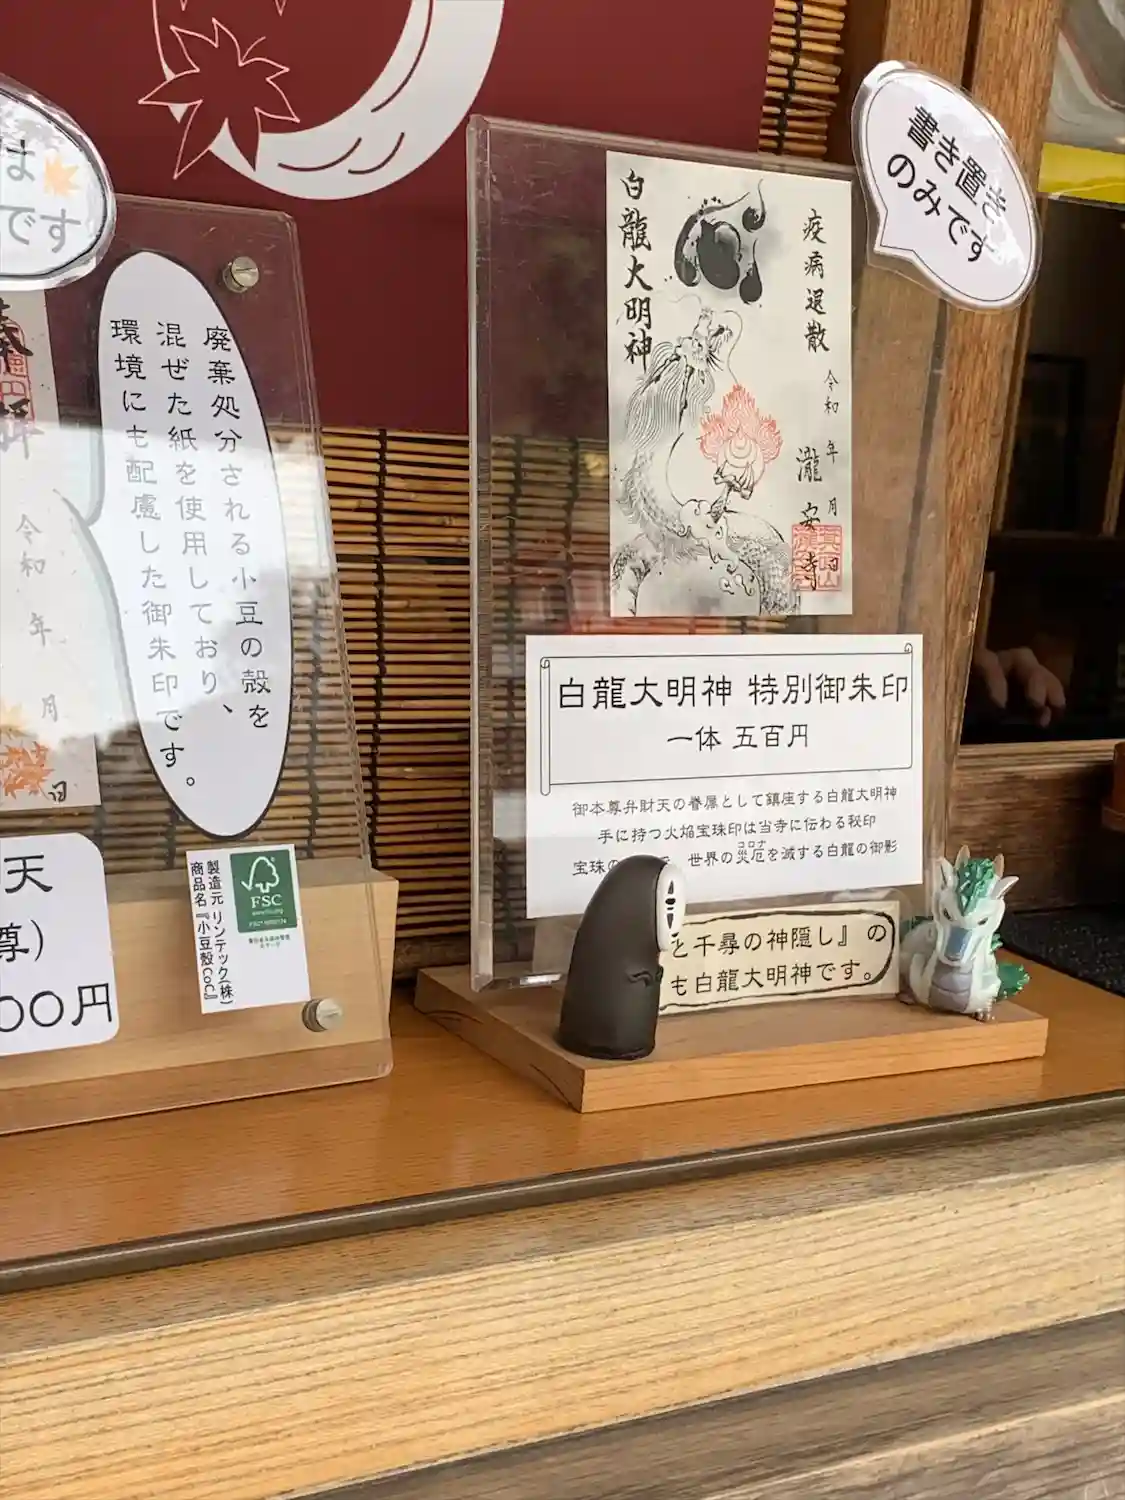 は
です
令和 年 月 日
廃棄処分される小豆の殻を
混ぜた紙を使用しており、
環境にも配慮した御朱印です。
天
尊)
00円
FSC
製造元 リンテック(株)
商品名『小豆殻CoC』
書き置き
のみです
疫病退散
令和 年 月 日
瀧安寺
白龍大明神
白龍大明神 特別御朱印
一体 五百円
御本尊弁財天の眷属として鎮座する白龍大明神
手に持つ火焔宝珠印は当寺に伝わる秘印
宝珠の
世界の災厄を滅する白龍の御影
コロナ
と千尋の神隠し』の
も白龍大明神です。